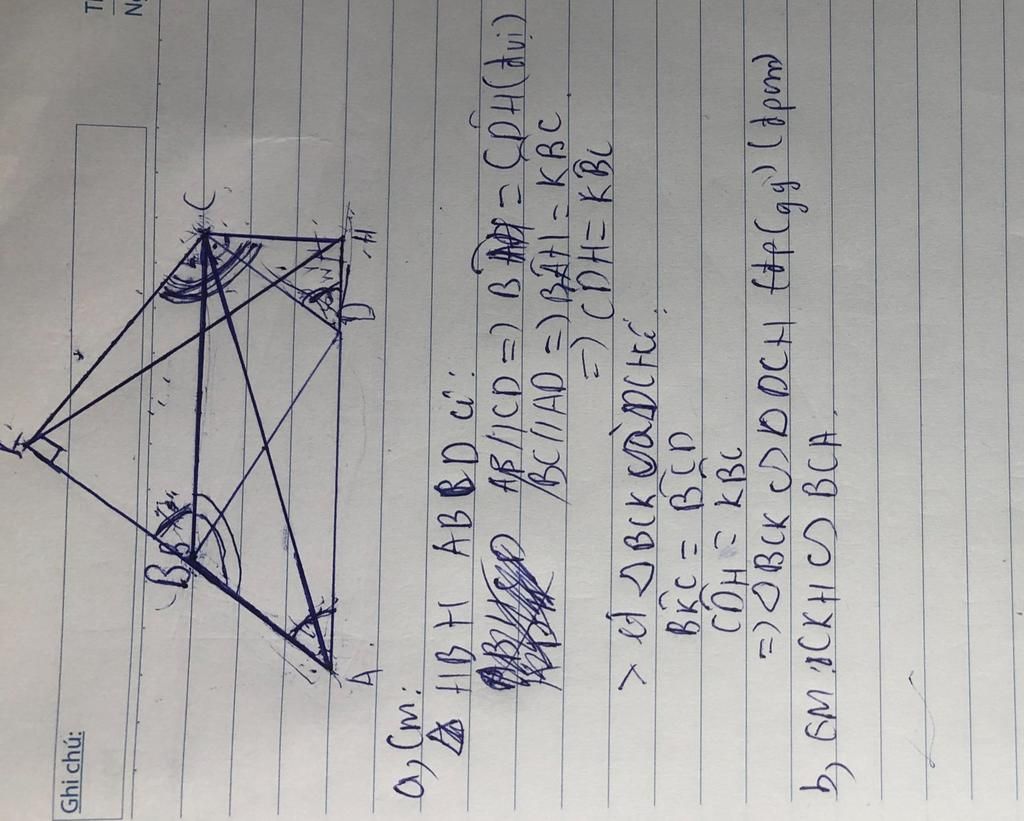 Ghi chú:
K
B
C
A
D
H
a, Cm:
HBH ABCD có:
AB//CD => = CDH (đvị)
BC//AD => BAH = KBC
=> CDH = KBC
> Xét ΔBCK và ΔDCH có
BKC = BCD
CDH = KBC
=> ΔBCK ∽ ΔDCH (gg) (đpcm)
b, CM: ΔCKH ∽ BCA.